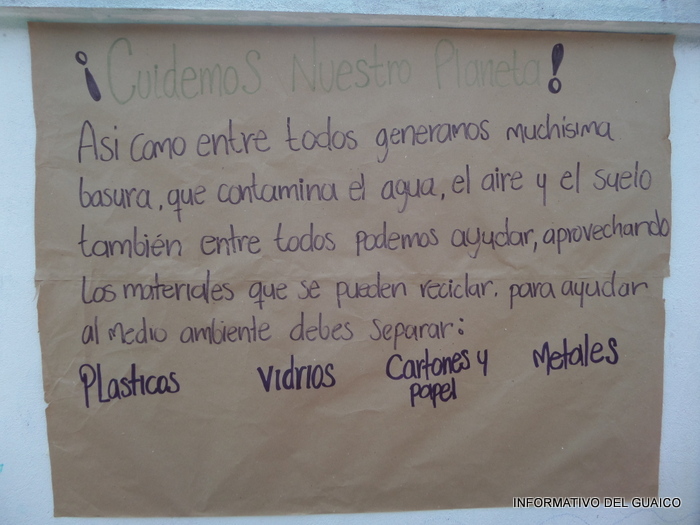 ¡Cuidemos Nuestro Planeta!
Asi como entre todos generamos muchísima
basura, que contamina el agua, el aire y el suelo
también entre todos podemos ayudar, aprovechando
los materiales que se pueden reciclar. para ayudar
al medio ambiente debes separar:
Plasticos Vidrios Cartones y papel Metales
INFORMATIVO DEL GUAICO